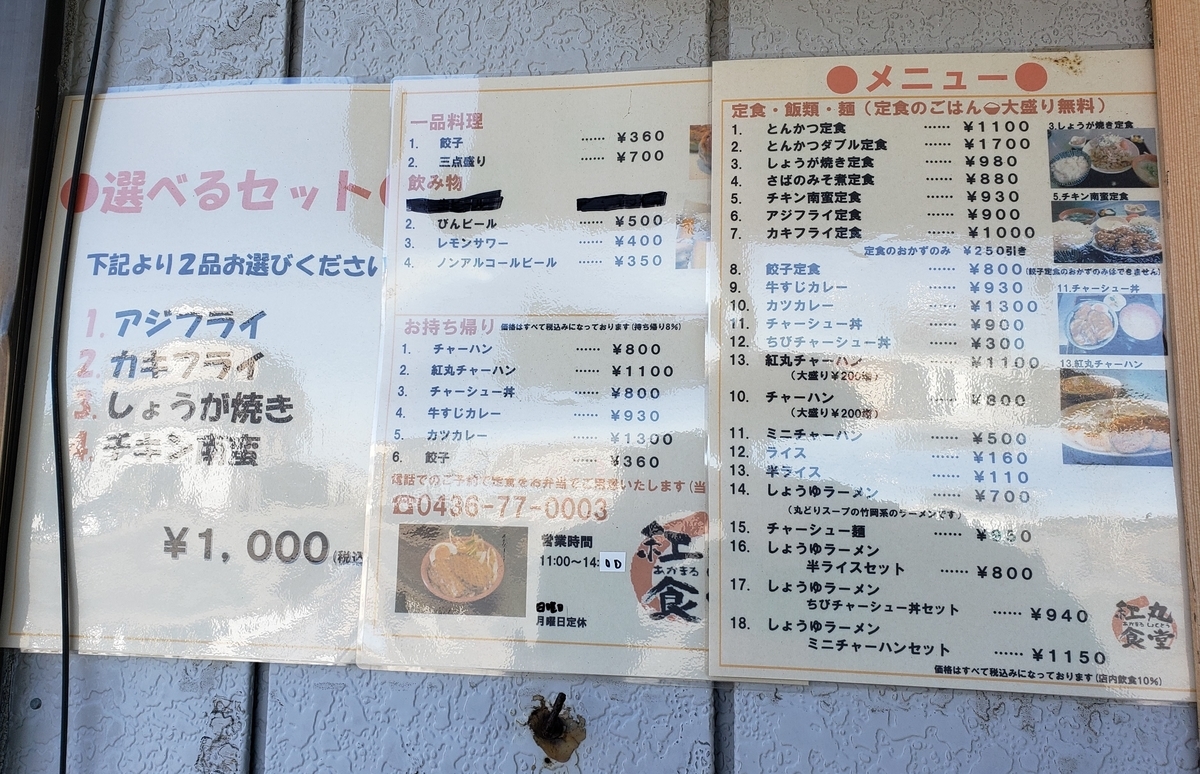 ●選べるセット●
下記より2品お選びください
1. アジフライ
2. カキフライ
3. しょうが焼き
4. チキン南蛮
¥1,000(税込
一品料理
1. 餃子 …… ¥360
2. 三点盛り …… ¥700
飲み物
2. びんビール …… ¥500
3. レモンサワー …… ¥400
4. ノンアルコールビール …… ¥350
お持ち帰り 価格はすべて税込みになっております(持ち帰り8%)
1. チャーハン …… ¥800
2. 紅丸チャーハン …… ¥1100
3. チャーシュー丼 …… ¥800
4. 牛すじカレー …… ¥930
5. カツカレー …… ¥1300
6. 餃子 …… ¥360
電話でのご予約で定食をお弁当でご用意いたします(当
☎0436-77-0003
営業時間
11:00〜14:00
月曜日定休
紅
あかまる
食
●メニュー●
定食・飯類・麺(定食のごはん大盛り無料)
1. とんかつ定食 …… ¥1100
2. とんかつダブル定食 …… ¥1700
3. しょうが焼き定食 …… ¥980
4. さばのみそ煮定食 …… ¥880
5. チキン南蛮定食 …… ¥930
6. アジフライ定食 …… ¥900
7. カキフライ定食 …… ¥1000
定食のおかずのみ ¥250引き
8. 餃子定食 …… ¥800(餃子定食のおかずのみはできません)
9. 牛すじカレー …… ¥930
10. カツカレー …… ¥1300
11. チャーシュー丼 …… ¥900
12. ちびチャーシュー丼 …… ¥300
13. 紅丸チャーハン …… ¥1100
(大盛り¥200増)
10. チャーハン …… ¥800
(大盛り¥200増)
11. ミニチャーハン …… ¥500
12. ライス …… ¥160
13. 半ライス …… ¥110
14. しょうゆラーメン …… ¥700
(丸どりスープの竹岡系のラーメンです)
15. チャーシュー麺 ……
16. しょうゆラーメン
半ライスセット …… ¥800
17. しょうゆラーメン
ちびチャーシュー丼セット …… ¥940
18. しょうゆラーメン
ミニチャーハンセット …… ¥1150
価格はすべて税込みになっております(店内飲食10%)
3.しょうが焼き定食
5.チキン南蛮定食
11.チャーシュー丼
13.紅丸チャーハン
紅丸
あかまるしょくどう
食堂